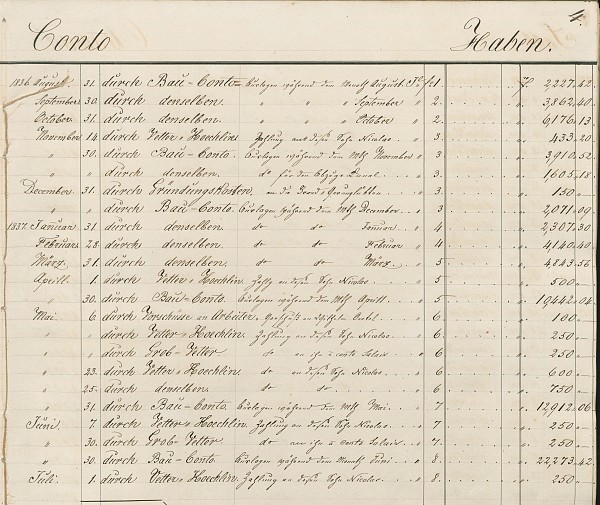 4.
Conto Haben.
1836. August. 31. durch Bau-Conto Auslagen während dem Monath August fo 1 fl. 2,227.42.
September 30. durch denselben. " " " September " 2. " 3,862.40
October 31. durch denselben. " " " October " 2. " 6,176.13
November 14. durch Vetter & Hoechlin Zahlung " 3. " 433.20
" 30. durch Bau-Conto. Auslagen während dem November " 3. " 3,910.52
" " durch denselben. do für " 3. " 1605.18
December 31. durch Gründungskosten " 3. " 150
" " durch Bau-Conto. Auslagen während dem December " 3 " 2,071.09.
1837. Januar 31. durch denselben do do Januar " 4 " 2,307.30
Februar 28. durch denselben. do do Februar " 4 " 4140.40
März 31. durch denselben. do do März. " 5 " 4,843.56
Aprill 1. durch Vetter & Hoechlin. " 5 " 500
" 30. durch Bau-Conto. Auslagen während dem Aprill " 5 " 19442.04.
Mai 6. durch Vorschüsse an Arbeiter. " 6 " 100
" " durch Vetter & Hoechlin. Zahlung an " 6. " 250
" " durch Grob-Vetter do " 6. " 250
" 23. durch Vetter & Hoechlin. do an " 6 " 600
" 25. durch denselben. do do " 6 " 750
" 31. durch Bau-Conto. Auslagen während dem Mai " 7 " 12,912.06
Juni 7. durch Vetter & Hoechlin Zahlung an " 7. " 250
" 30. durch Grob-Vetter do " 7. " 250
" 30. durch Bau-Conto Auslagen während dem Monath Juni " 8. " 22,273.42.
Juli. 1. durch Vetter & Hoechlin Zahlung an " 8. " 250